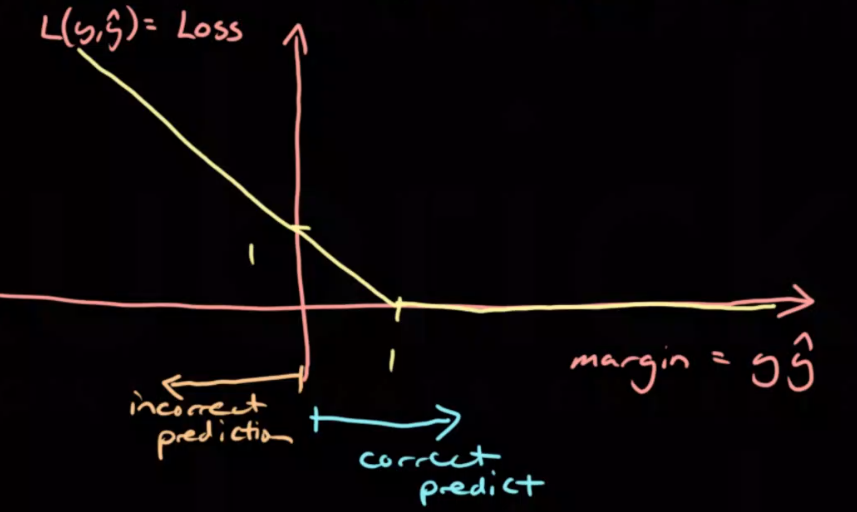 L(y,ŷ)= Loss
1
1
margin = yŷ
incorrect
prediction
correct
predict